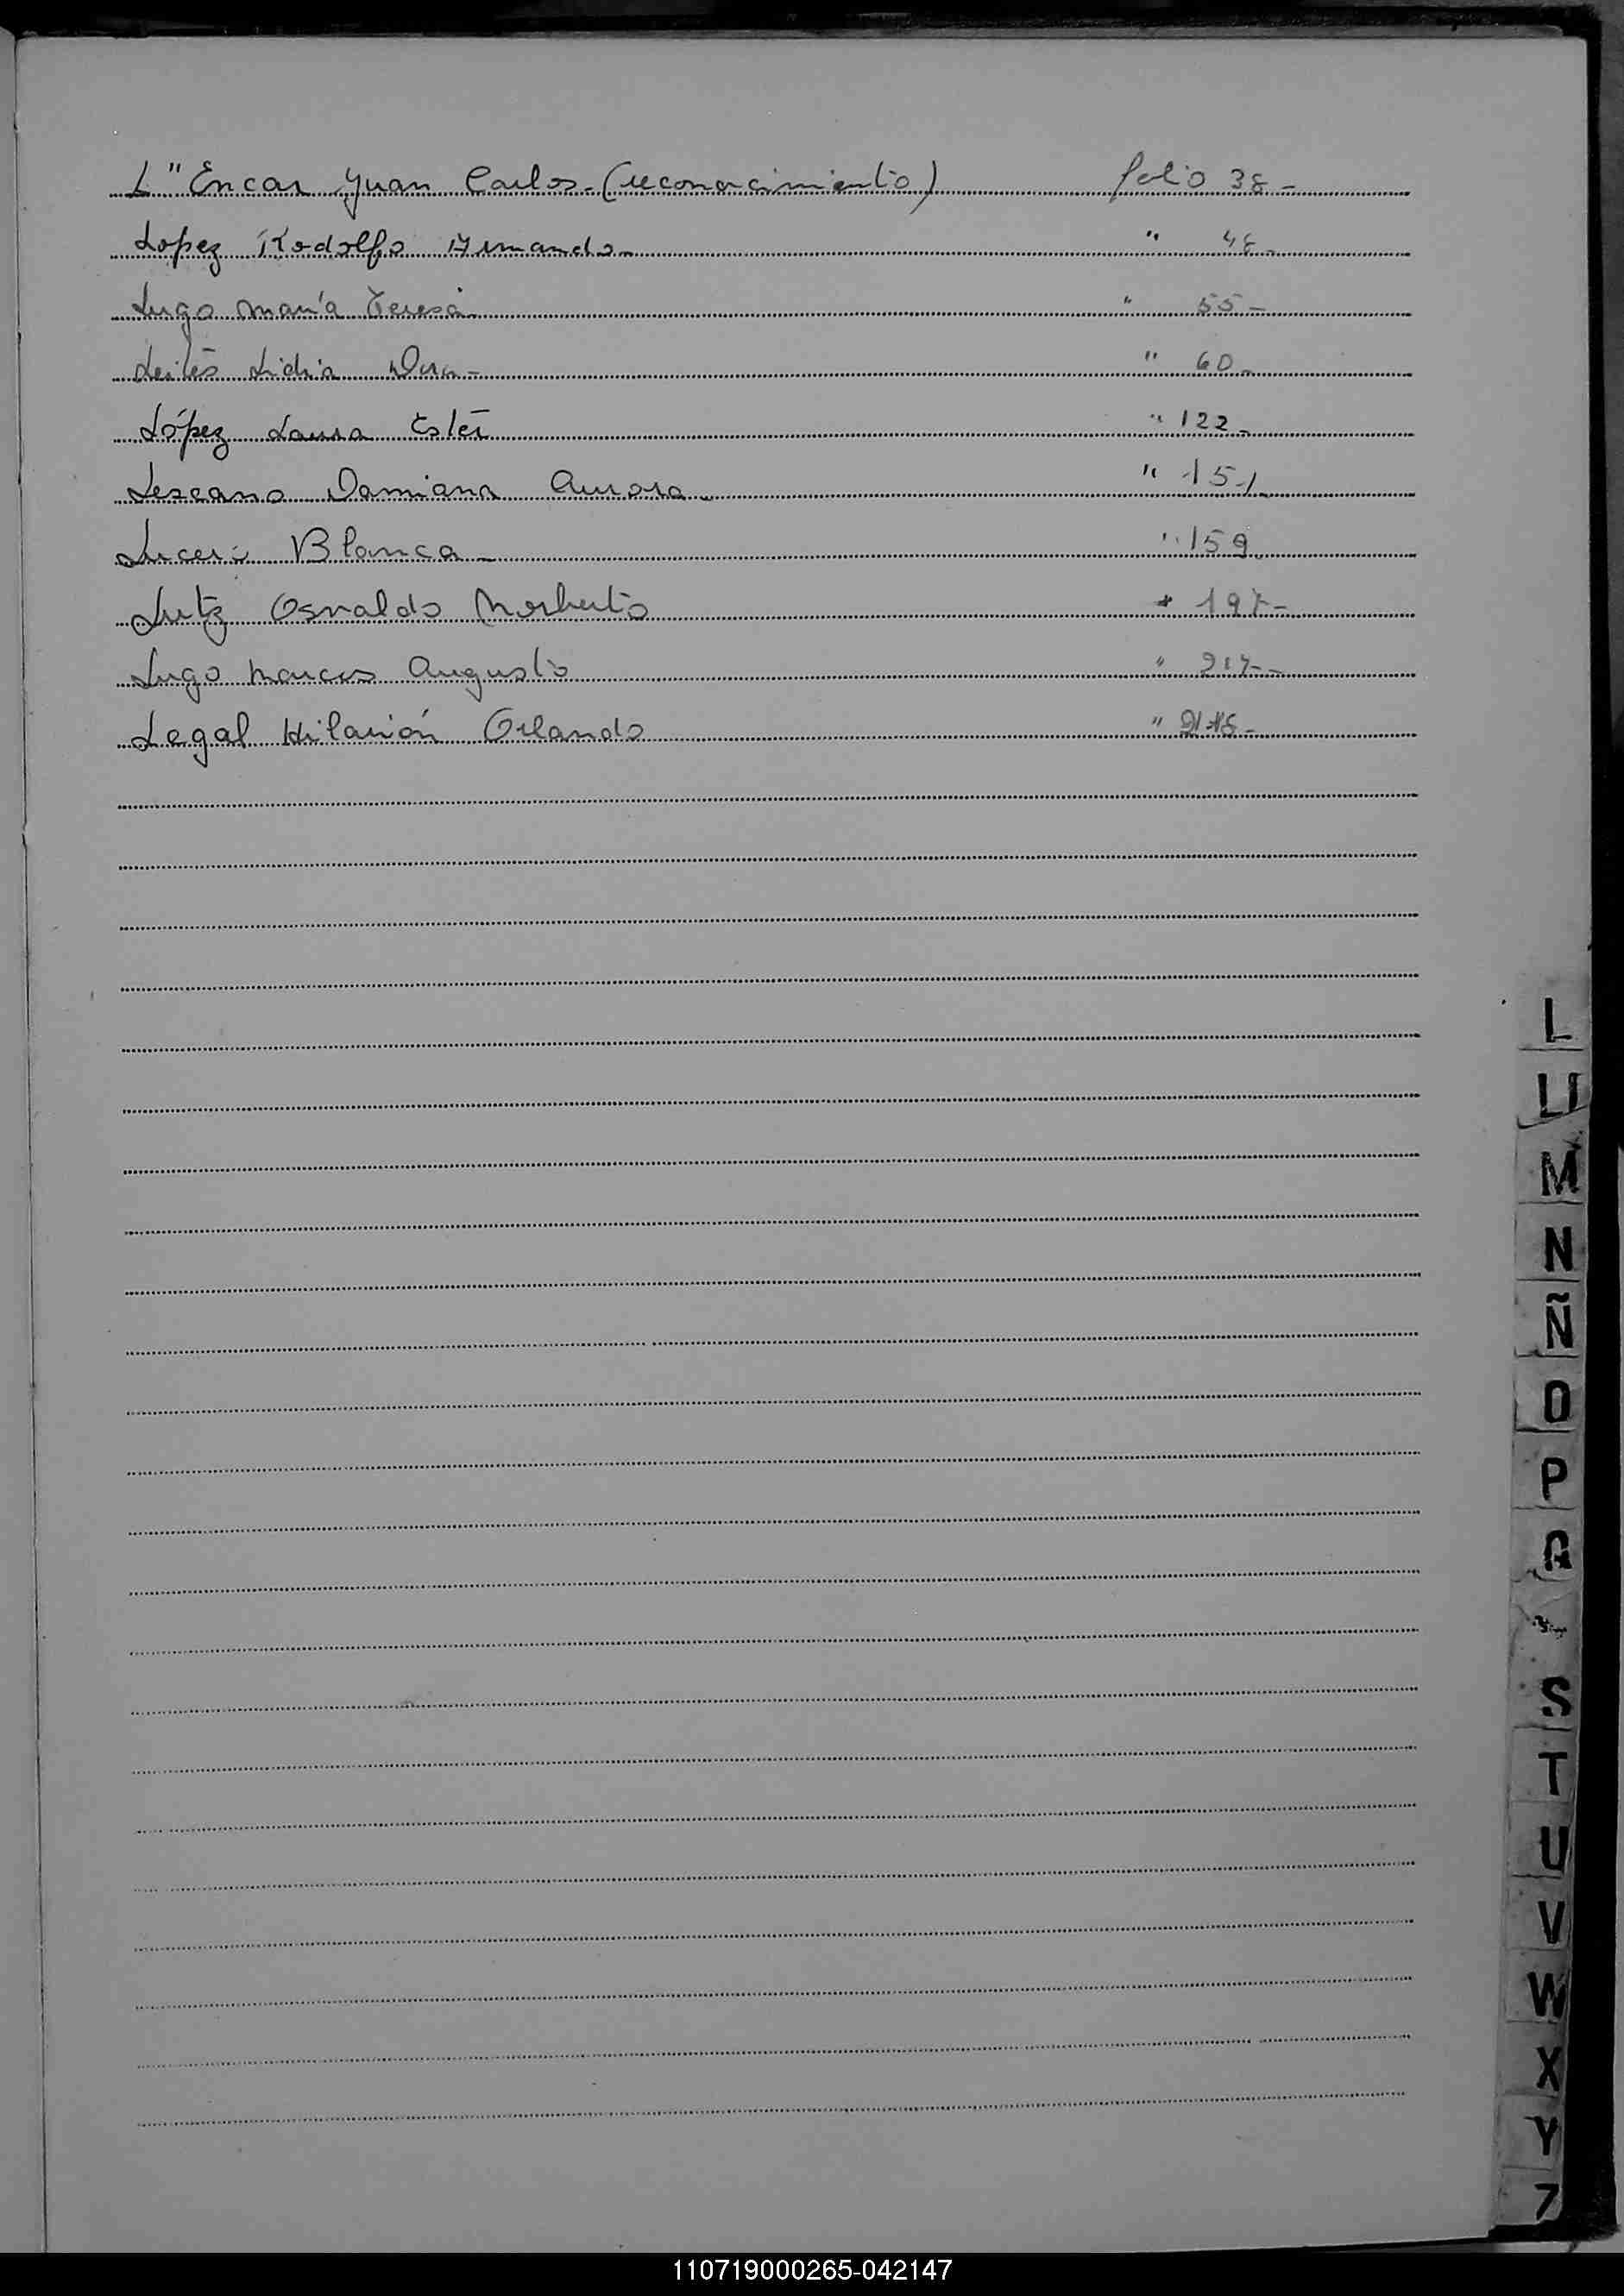 L" Encar Juan Carlos.-(reconocimiento) folio 38-
Lopez Rodolfo Armando- " 48-
Lugo María Teresa- " 55-
Leites Lidia " 60-
López Laura Ester " 122-
Lezcano Damiana Aurora- " 151-
Lucero Blanca- " 159
Lutz Osvaldo Norberto " 197-
Lugo Marcos Augusto " 217-
Legal Hilarión Orlando "
L
Ll
M
N
Ñ
O
P
Q
S
T
U
V
W
X
Y
Z
110719000265-042147